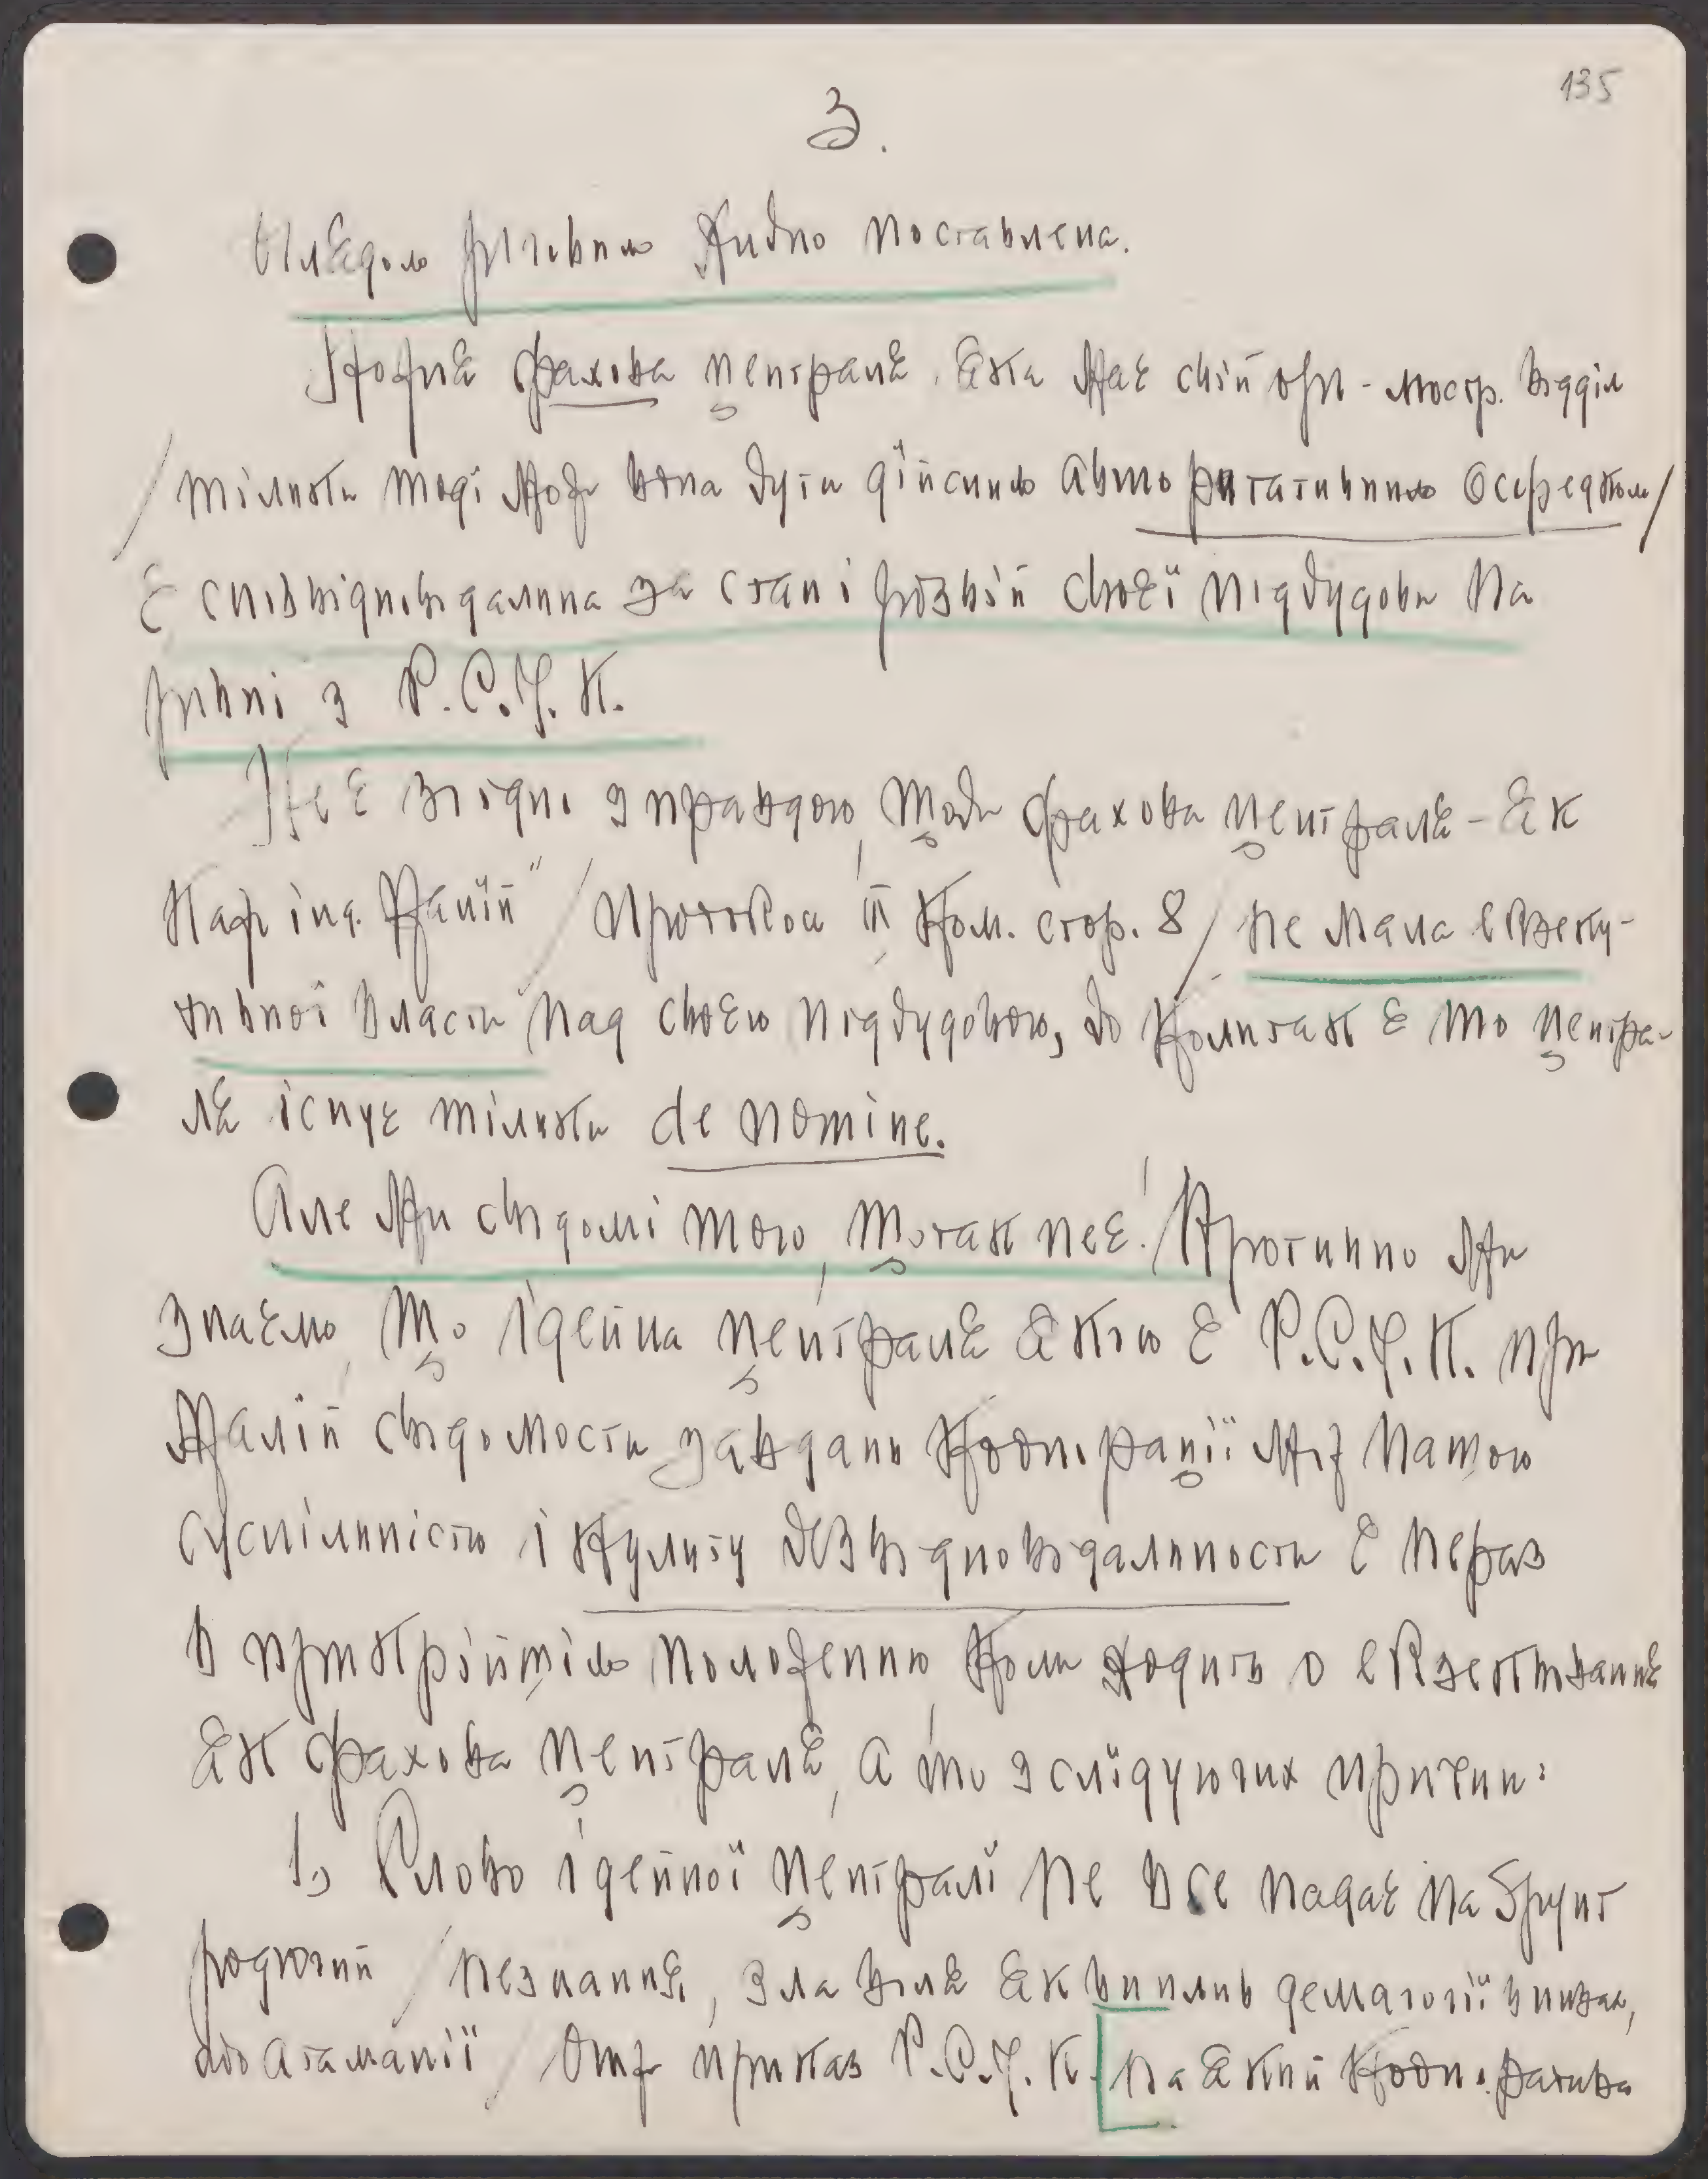 135
3.
хибно поставлена.
Кожна фахова централя, яка має свій орг-люстр. відділ
/тільки тоді може вона бути дійсним авторитативним осередком/
є співвідповідальна за стан і розвій своєї підбудови на
рівні з Р.С.У.К.
Не є згідне з правдою, щоби фахова централя - як
каже інд. Палій" /протокол ІІІ Ком. стор. 8/ не мала екзеку-
тивної власти над своєю підбудовою, бо коли так є то центра-
ля існує тільки de nomine.
Але ми свідомі того, що так не є! Противно ми
знаємо, що ідейна централя якою є Р.С.У.К. при
малій свідомости завдань кооперації між нашою
суспільністю і культу безвідповідальности є нераз
в прикрійшім положенню, коли ходить о екзеквованнє
як фахова централя, а то з слідуючих причин:
1, Слово ідейної централі не все падає на ґрунт
родючий /незнаннє, зла воля як вплив демагогії впливає,
або атаманії/ Отже приказ Р.С.У.К. на який кооператива